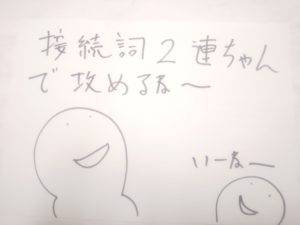 接続詞2連ちゃん
で攻めるな〜
いーなー